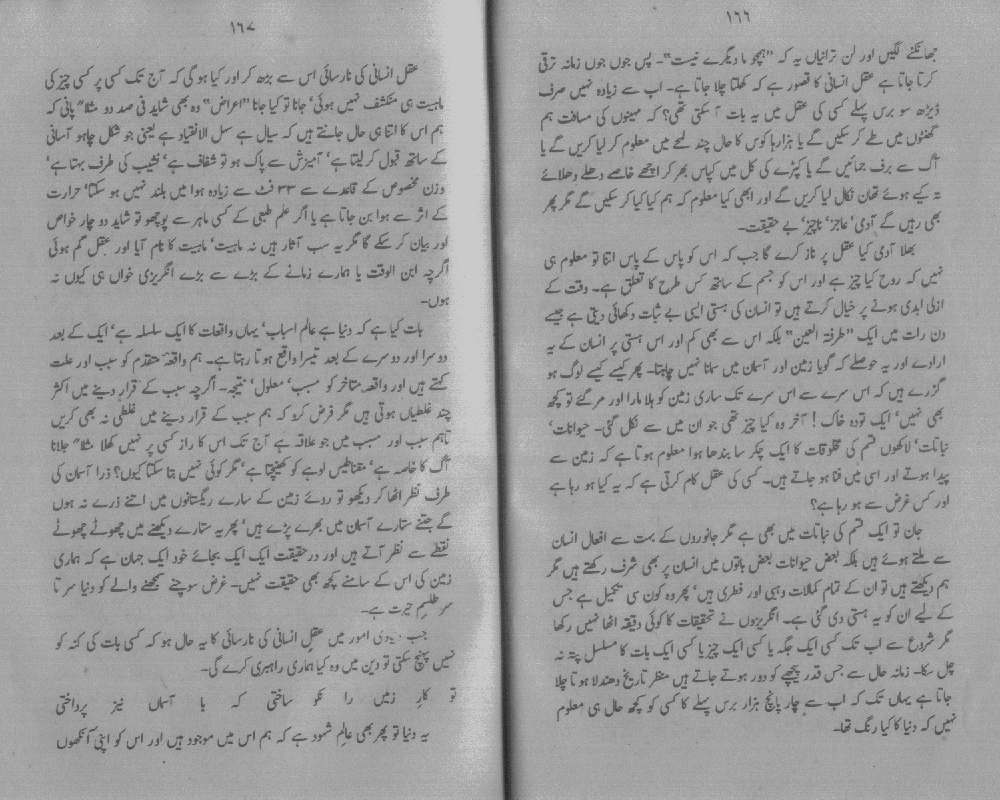 ۱۶۶
جھانکنے لگیں اور لن ترانیاں یہ کہ "ہمچو ما دیگرے نیست"۔ پس جوں جوں زمانہ ترقی
کرتا جاتا ہے عقل انسانی کا قصور ہے کہ کھلتا چلا جاتا ہے۔ اب سے زیادہ نہیں صرف
ڈیڑھ سو برس پہلے کسی کی عقل میں یہ بات آ سکتی تھی؟ کہ مہینوں کی مسافت ہم
گھنٹوں میں طے کر سکیں گے یا ہزارہا کوس کا حال چند لمحے میں معلوم کر لیا کریں گے یا
آگ سے برف جمائیں گے یا کپڑے کی کل میں کپاس بھر کر اچھے خاصے دھلے دھلائے
تہ کیے ہوئے تھان نکال لیا کریں گے اور ابھی کیا معلوم کہ ہم کیا کیا کر سکیں گے مگر پھر
بھی رہیں گے آدمی' عاجز' ناچیز' بے حقیقت۔
بھلا آدمی کیا عقل پر ناز کرے گا جب کہ اس کو پاس کے پاس اتنا تو معلوم ہی
نہیں کہ روح کیا چیز ہے اور اس کو جسم کے ساتھ کس طرح کا تعلق ہے۔ وقت کے
ازلی ابدی ہونے پر خیال کرتے ہیں تو انسان کی ہستی ایسی بے ثبات دکھائی دیتی ہے جیسے
دن رات میں ایک "طرفۃ العین" بلکہ اس سے بھی کم اور اس ہستی پر انسان کے یہ
ارادے اور یہ حوصلے کہ گویا زمین اور آسمان میں سمانا نہیں چاہتا۔ پھر کیسے کیسے لوگ ہو
گزرے ہیں کہ اس سرے سے اس سرے تک ساری زمین کو ہلا مارا اور مر گئے تو کچھ
بھی نہیں' ایک تودہ خاک! آخر وہ کیا چیز تھی جو ان میں سے نکل گئی۔ حیوانات'
نباتات' لاکھوں قسم کی مخلوقات کا ایک چکر سا بندھا ہوا معلوم ہوتا ہے کہ زمین سے
پیدا ہوتے اور اسی میں فنا ہو جاتے ہیں۔ کسی کی عقل کام کرتی ہے کہ یہ کیا ہو رہا ہے
اور کس غرض سے ہو رہا ہے؟
جان تو ایک قسم کی نباتات میں بھی ہے مگر جانوروں کے بہت سے افعال انسان
سے ملتے ہوئے ہیں بلکہ بعض حیوانات بعض باتوں میں انسان پر بھی شرف رکھتے ہیں مگر
ہم دیکھتے ہیں تو ان کے تمام کمالات وہبی اور فطری ہیں' پھر وہ کون سی تکمیل ہے جس
کے لیے ان کو یہ ہستی دی گئی ہے۔ انگریزوں نے تحقیقات کا کوئی دقیقہ اٹھا نہیں رکھا
مگر شروع سے اب تک کسی ایک جگہ یا کسی ایک چیز یا کسی ایک بات کا مسلسل پتہ نہ
چل سکا۔ زمانہ حال سے جس قدر پیچھے کو دور ہوتے جاتے ہیں منظر تاریخ دھندلا ہوتا چلا
جاتا ہے یہاں تک کہ اب سے چار پانچ ہزار برس پہلے کا کسی کو کچھ حال ہی معلوم
نہیں کہ دنیا کا کیا رنگ تھا۔
۱۶۷
عقل انسانی کی نارسائی اس سے بڑھ کر اور کیا ہو گی کہ آج تک کسی پر کسی چیز کی
ماہیت ہی منکشف نہیں ہوئی' جانا تو کیا جانا "اعراض" وہ بھی شاید فی صد دو مثلاً پانی کہ
ہم اس کا اتنا ہی حال جانتے ہیں کہ سیال ہے سہل الانقیاد ہے یعنی جو شکل چاہو آسانی
کے ساتھ قبول کر لیتا ہے' آمیزش سے پاک ہو تو شفاف ہے' نشیب کی طرف بہتا ہے'
وزن مخصوص کے قاعدے سے ۳۳ فٹ سے زیادہ ہوا میں بلند نہیں ہو سکتا' حرارت
کے اثر سے ہوا بن جاتا ہے یا اگر علم طبعی کے کسی ماہر سے پوچھو تو شاید دو چار خواص
اور بیان کر سکے گا مگر یہ سب آثار ہیں نہ ماہیت' ماہیت کا نام آیا اور عقل گم ہوئی
اگرچہ ابن الوقت یا ہمارے زمانے کے بڑے سے بڑے انگریزی خواں ہی کیوں نہ
ہوں۔
بات کیا ہے کہ دنیا ہے عالم اسباب' یہاں واقعات کا ایک سلسلہ ہے' ایک کے بعد
دوسرا اور دوسرے کے بعد تیسرا واقع ہوتا رہتا ہے۔ ہم واقعہ متقدم کو سبب اور علت
کہتے ہیں اور واقعہ متاخر کو مسبب' معلول' نتیجہ۔ اگرچہ سبب کے قرار دینے میں اکثر
چند غلطیاں ہوتی ہیں مگر فرض کرو کہ ہم سبب کے قرار دینے میں غلطی نہ بھی کریں
تاہم سبب اور مسبب میں جو علاقہ ہے آج تک اس کا راز کسی پر نہیں کھلا مثلاً جلانا
آگ کا خاصہ ہے' مقناطیس لوہے کو کھینچتا ہے' مگر کوئی نہیں بتا سکتا کیوں؟ ذرا آسمان کی
طرف نظر اٹھا کر دیکھو تو روئے زمین کے سارے ریگستانوں میں اتنے ذرے نہ ہوں
گے جتنے ستارے آسمان میں بھرے پڑے ہیں' پھر یہ ستارے دیکھنے میں چھوٹے چھوٹے
نقطے سے نظر آتے ہیں اور درحقیقت ایک ایک بجائے خود ایک جہان ہے کہ ہماری
زمین کی اس کے سامنے کچھ بھی حقیقت نہیں۔ غرض سوچنے سمجھنے والے کو دنیا سر تا
سر طلسم حیرت ہے۔
جب دنیوی امور میں عقل انسانی کی نارسائی کا یہ حال ہو کہ کسی بات کی کنہ کو
نہیں پہنچ سکتی تو دین میں وہ کیا ہماری راہبری کرے گی۔
تو کار زمیں را نکو ساختی کہ با آسماں نیز پرداختی
یہ دنیا تو پھر بھی عالم شہود ہے کہ ہم اس میں موجود ہیں اور اس کو اپنی آنکھوں